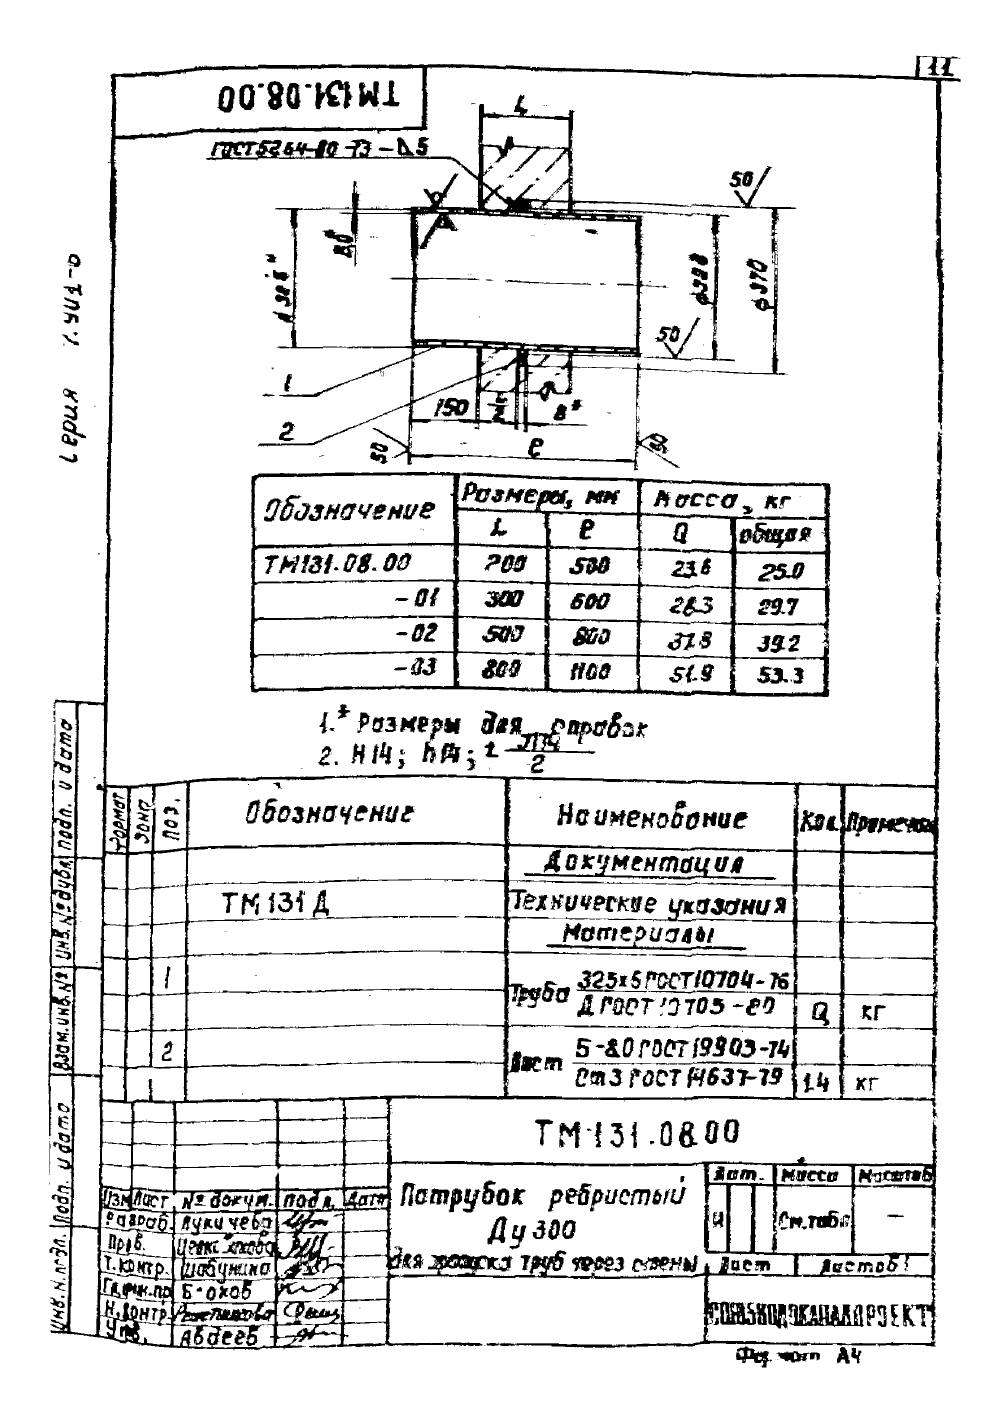 11
ТМ131.08.00
ГОСТ 5264-80-Т3-Δ5
L
50
50
⌀328
⌀370
1
2
150
L/2
8*
ℓ
50
50
Серия
Обозначение Размеры, мм Масса, кг
L ℓ Q общая
ТМ131.08.00 200 500 23.6 25.0
-01 300 600 28.3 29.7
-02 500 800 37.8 39.2
-03 800 1100 51.9 53.3
1.* Размеры для справок
2. H14; h14; ± IT14/2
Формат Зона Поз. Обозначение Наименование Кол. Примечан
Документация
ТМ131Д Технические указания
Материалы
1 Труба 325х6 ГОСТ 10704-76
Д ГОСТ 10705-80 Q кг
2 Лист Б-8.0 ГОСТ 19903-74
Ст3 ГОСТ 14637-79 1.4 кг
Инв.N подл. Подп. и дата Взам.инв.№ Инв.№ дубл. Подп. и дата
ТМ131.08.00
Изм Лист № докум. Подп. Дата
Разраб. Лукичева
Пров.
Т.контр. Шабунина
Гл.инж.пр
Н.контр.
Утв. Авдеев
Патрубок ребристый
Ду 300
для пропуска труб через стены
Лит. Масса Масштаб
И См.табл. —
Лист Листов 1
СОЮЗВОДОКАНАЛПРОЕКТ
Формат А4